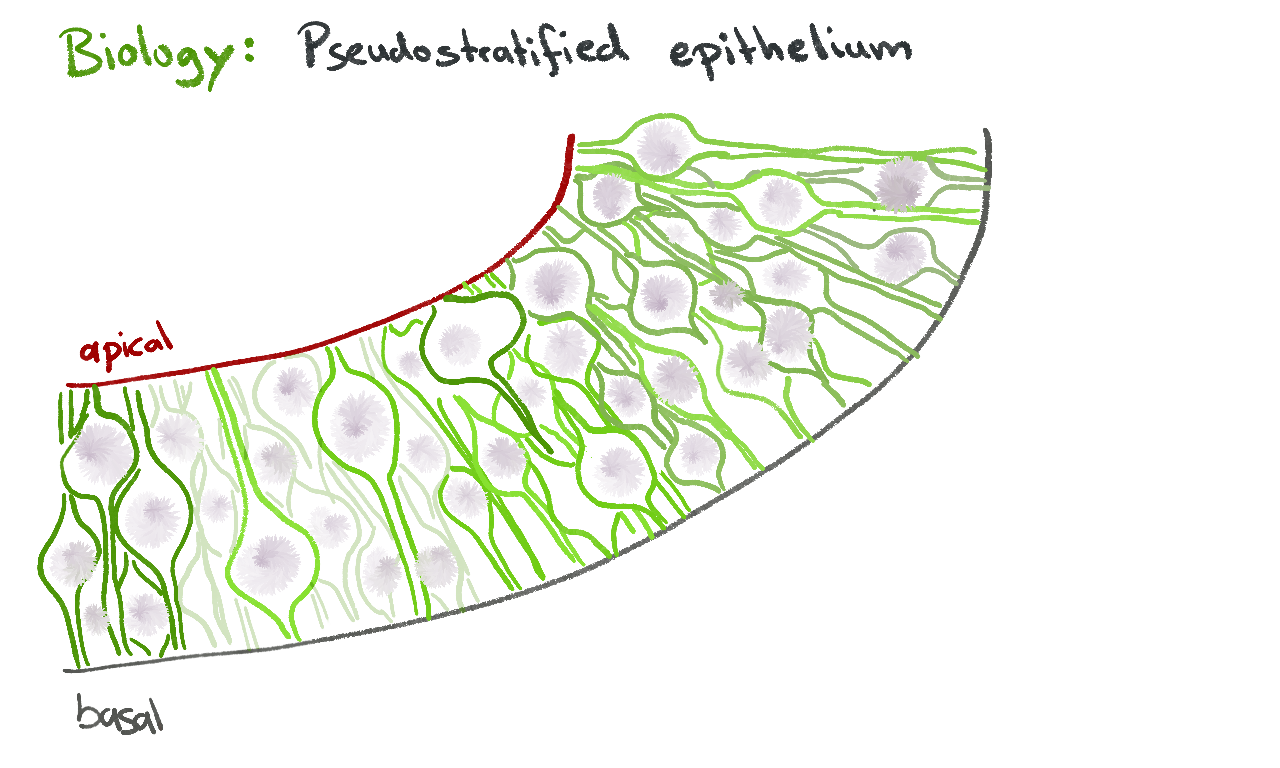 Biology: Pseudostratified epithelium
apical
basal